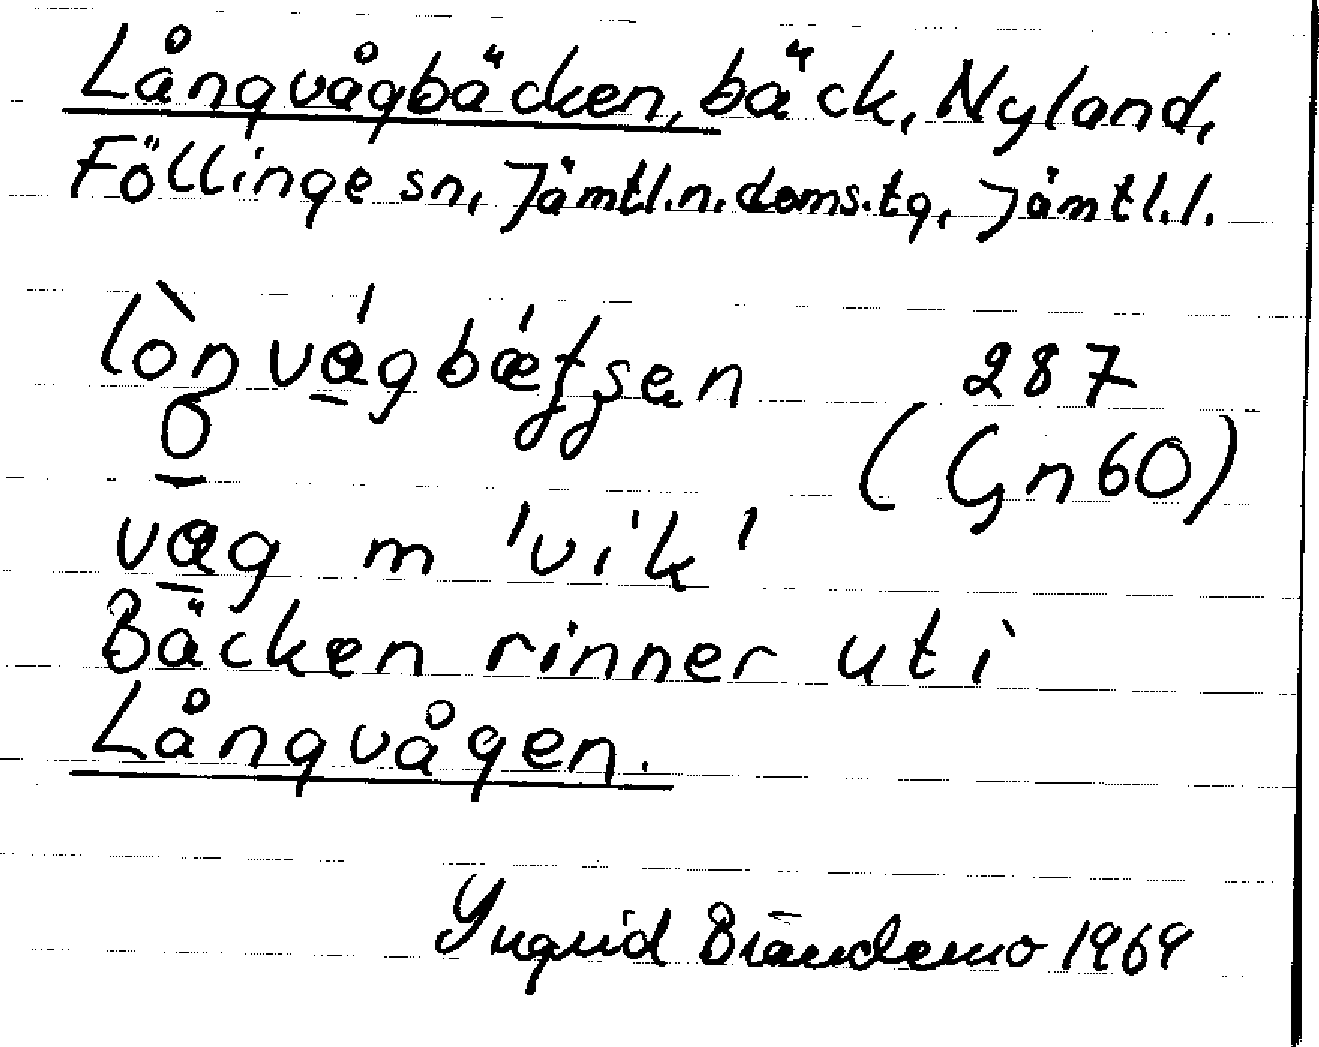 Långvågbäcken, bäck, Nyland,
Föllinge sn, Jämtl.n.doms.tg, Jämtl.l.
287
(Gn60)
m 'vik'
Bäcken rinner ut i
Långvågen.
Yngrid Brändemo 1969